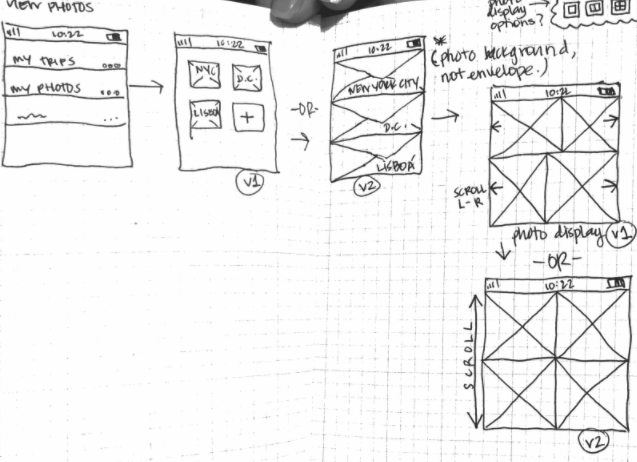 VIEW PHOTOS
10:22
MY TRIPS
MY PHOTOS
10:22
NYC
D.C.
LISBOA
+
V1
-OR-
10:22
NEW YORK CITY
D.C.
LISBOA
V2
*
(photo background,
not envelope.)
photo
display
options?
10:22
SCROLL
L-R
photo display
V1
-OR-
10:22
SCROLL
V2